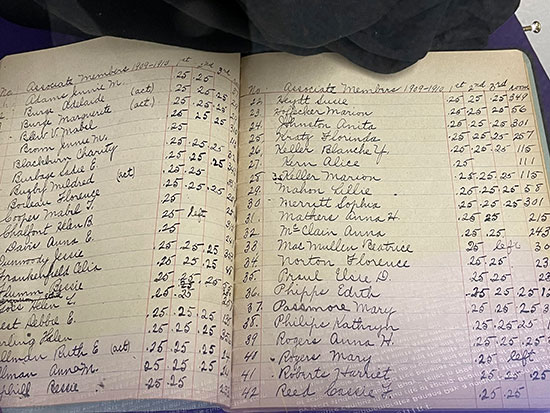 No Associate Members 1909-1910 1st 2nd 3rd
Adams Jennie M. .25 .25
Burge Adelaide (act) .25 .25 .25
Burge Marguerite (act) .25 .25 .25
V. Mabel .25
Brown Jennie M. .25
Blackburn Charity .25 .25 .25
Burbage Sadie E .25 .25 .25
Busby Mildred (act) .25 .25 .25
Florence .25 .25 .25
Cooper Mabel T. .25
Chalfont Ellen B. .25 left
Davis Anna E. .25
Dunwoody Jessie .25 .25 .25
Frankenfield Alia .25 .25 .25
Bessie .25 .25 .25
Helen L. .25 .25
Debbie E. .25 .25 .25
Ellen .25 .25 .25
Ruth E (act) .25 .25 .25
Anna M. .25 .25 .25
Bessie .25 .25
No Associate Members 1909-1910 1st 2nd 3rd room
22 Hyatt Susie .25 .25 .25 349
23 Marion .25 .25 .25 56
24 Johnston Anita .25 .25 .25 301
25 Kratz Florinda .25 .25 .25 257
26 Keller Blanche Y. .25 .25 .25 115
27 Kern Alice .25 111
Keller Marion .25 .25 .25 115
29. Mahon Lillie .25 .25 .25 55
30. Merritt Sophia .25 .25 .25 301
31. Mathers Anna H. .25 .25 215
32. McClain Anna .25 243
33. MacMullen Beatrice .25 left
34 Norton Florence .25 .25
35. Elsie D. .25 .25
36. Phipps Edith .25 .25 .25
37. Passmore Mary .25 .25 .25
38. Philips Kathryn .25 .25 .25
39 Rogers Anna H. .25 .25 .25
40 Rogers Mary .25 left
41 Roberts Harriet .25 .25 .25
42 Reed Cassie F. .25 .25